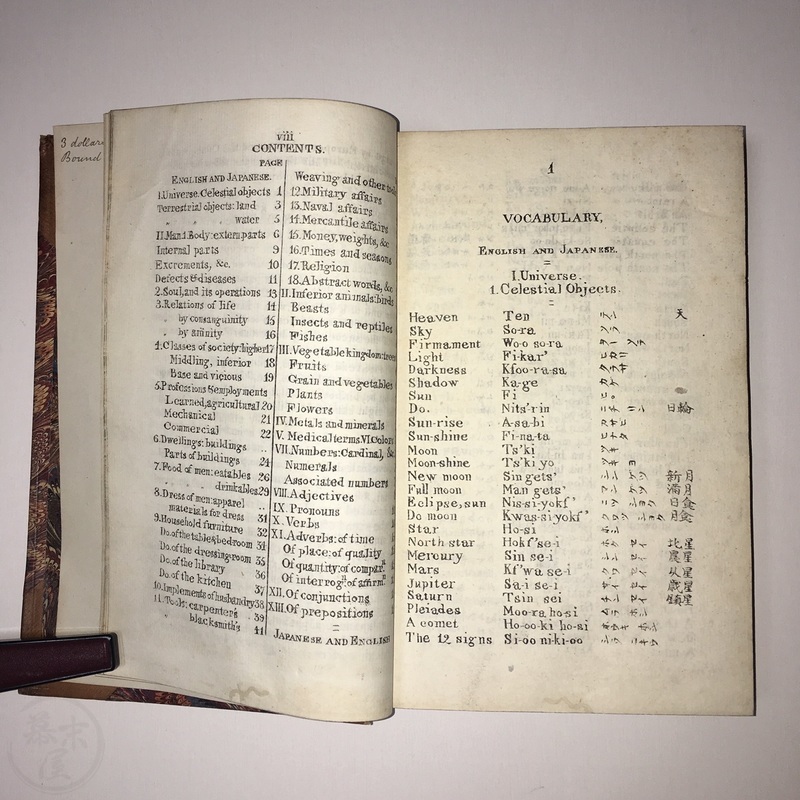 3 dollars
Bound
viii
CONTENTS.
PAGE
ENGLISH AND JAPANESE.
I.Universe.Celestial objects 1
Terrestrial objects: land 3
" " water 5
II.Man.1.Body:extern.parts 6
Internal parts 9
Excrements, &c. 10
Defects & diseases 11
2.Soul,and its operations 13
3.Relations of life 14
" by consanguinity 15
" by affinity 16
4.Classes of society:higher 17
Middling, inferior 18
Base and vicious 19
5.Professions & employments
Learned,agricultural 20
Mechanical 21
Commercial 22
6.Dwellings: buildings ..
Parts of buildings 24
7.Food of men: eatables 26
" drinkables 29
8.Dress of men:apparel ..
materials for dress 31
9.Household furniture 32
Do.of the table & bedroom 34
Do.of the dressing-room 35
Do.of the library 36
Do.of the kitchen 37
10.Implements of husbandry 38
11.Tools: carpenters 39
" blacksmith's 41
Weaving and other
12.Military affairs
13.Naval affairs
14.Mercantile affairs
15.Money, weights, &c
16.Times and seasons
17.Religion
18.Abstract words, &c.
II.Inferior animals:birds
Beasts
Insects and reptiles
Fishes
III.Vegetable kingdom:trees
Fruits
Grain and vegetables
Plants
Flowers
IV.Metals and minerals
V. Medical terms.VI.Colors
VII.Numbers:Cardinal, &c
Numerals
Associated numbers
VIII.Adjectives
IX. Pronouns
X. Verbs
XI.Adverbs: of time
Of place: of quality
Of quantity: of compar.
Of interrog.n of affirm.n
XII.Of conjunctions
XIII.Of prepositions
JAPANESE AND ENGLISH
1
VOCABULARY,
ENGLISH AND JAPANESE.
I.Universe.
1.Celestial Objects.
Heaven Ten テン 天
Sky So-ra ソラ
Firmament Wo-o so-ra
Light Fi-kar'
Darkness Kfoo-ra-sa
Shadow Ka-ge
Sun Fi
Do. Nits'rin 日輪
Sun-rise A-sa-hi
Sun-shine Fi-na-ta
Moon Ts'ki ツキ
Moon-shine Ts'ki yo ツキ ヨ
New moon Sin gets' 新月
Full moon Man gets' 満月
Eclipse,sun Nis-si-yokf' 日食
Do moon Kwas-si yokf' 月食
Star Ho-si ホシ
North star Hokf'se-i 北星
Mercury Sin se-i
Mars Kf'wa se-i
Jupiter Sa-i se-i
Saturn Tsin sei
Pleiades Moo-ra ho-si
A comet Ho-oo-ki ho-si
The 12 signs Si-oo ni-ki-oo